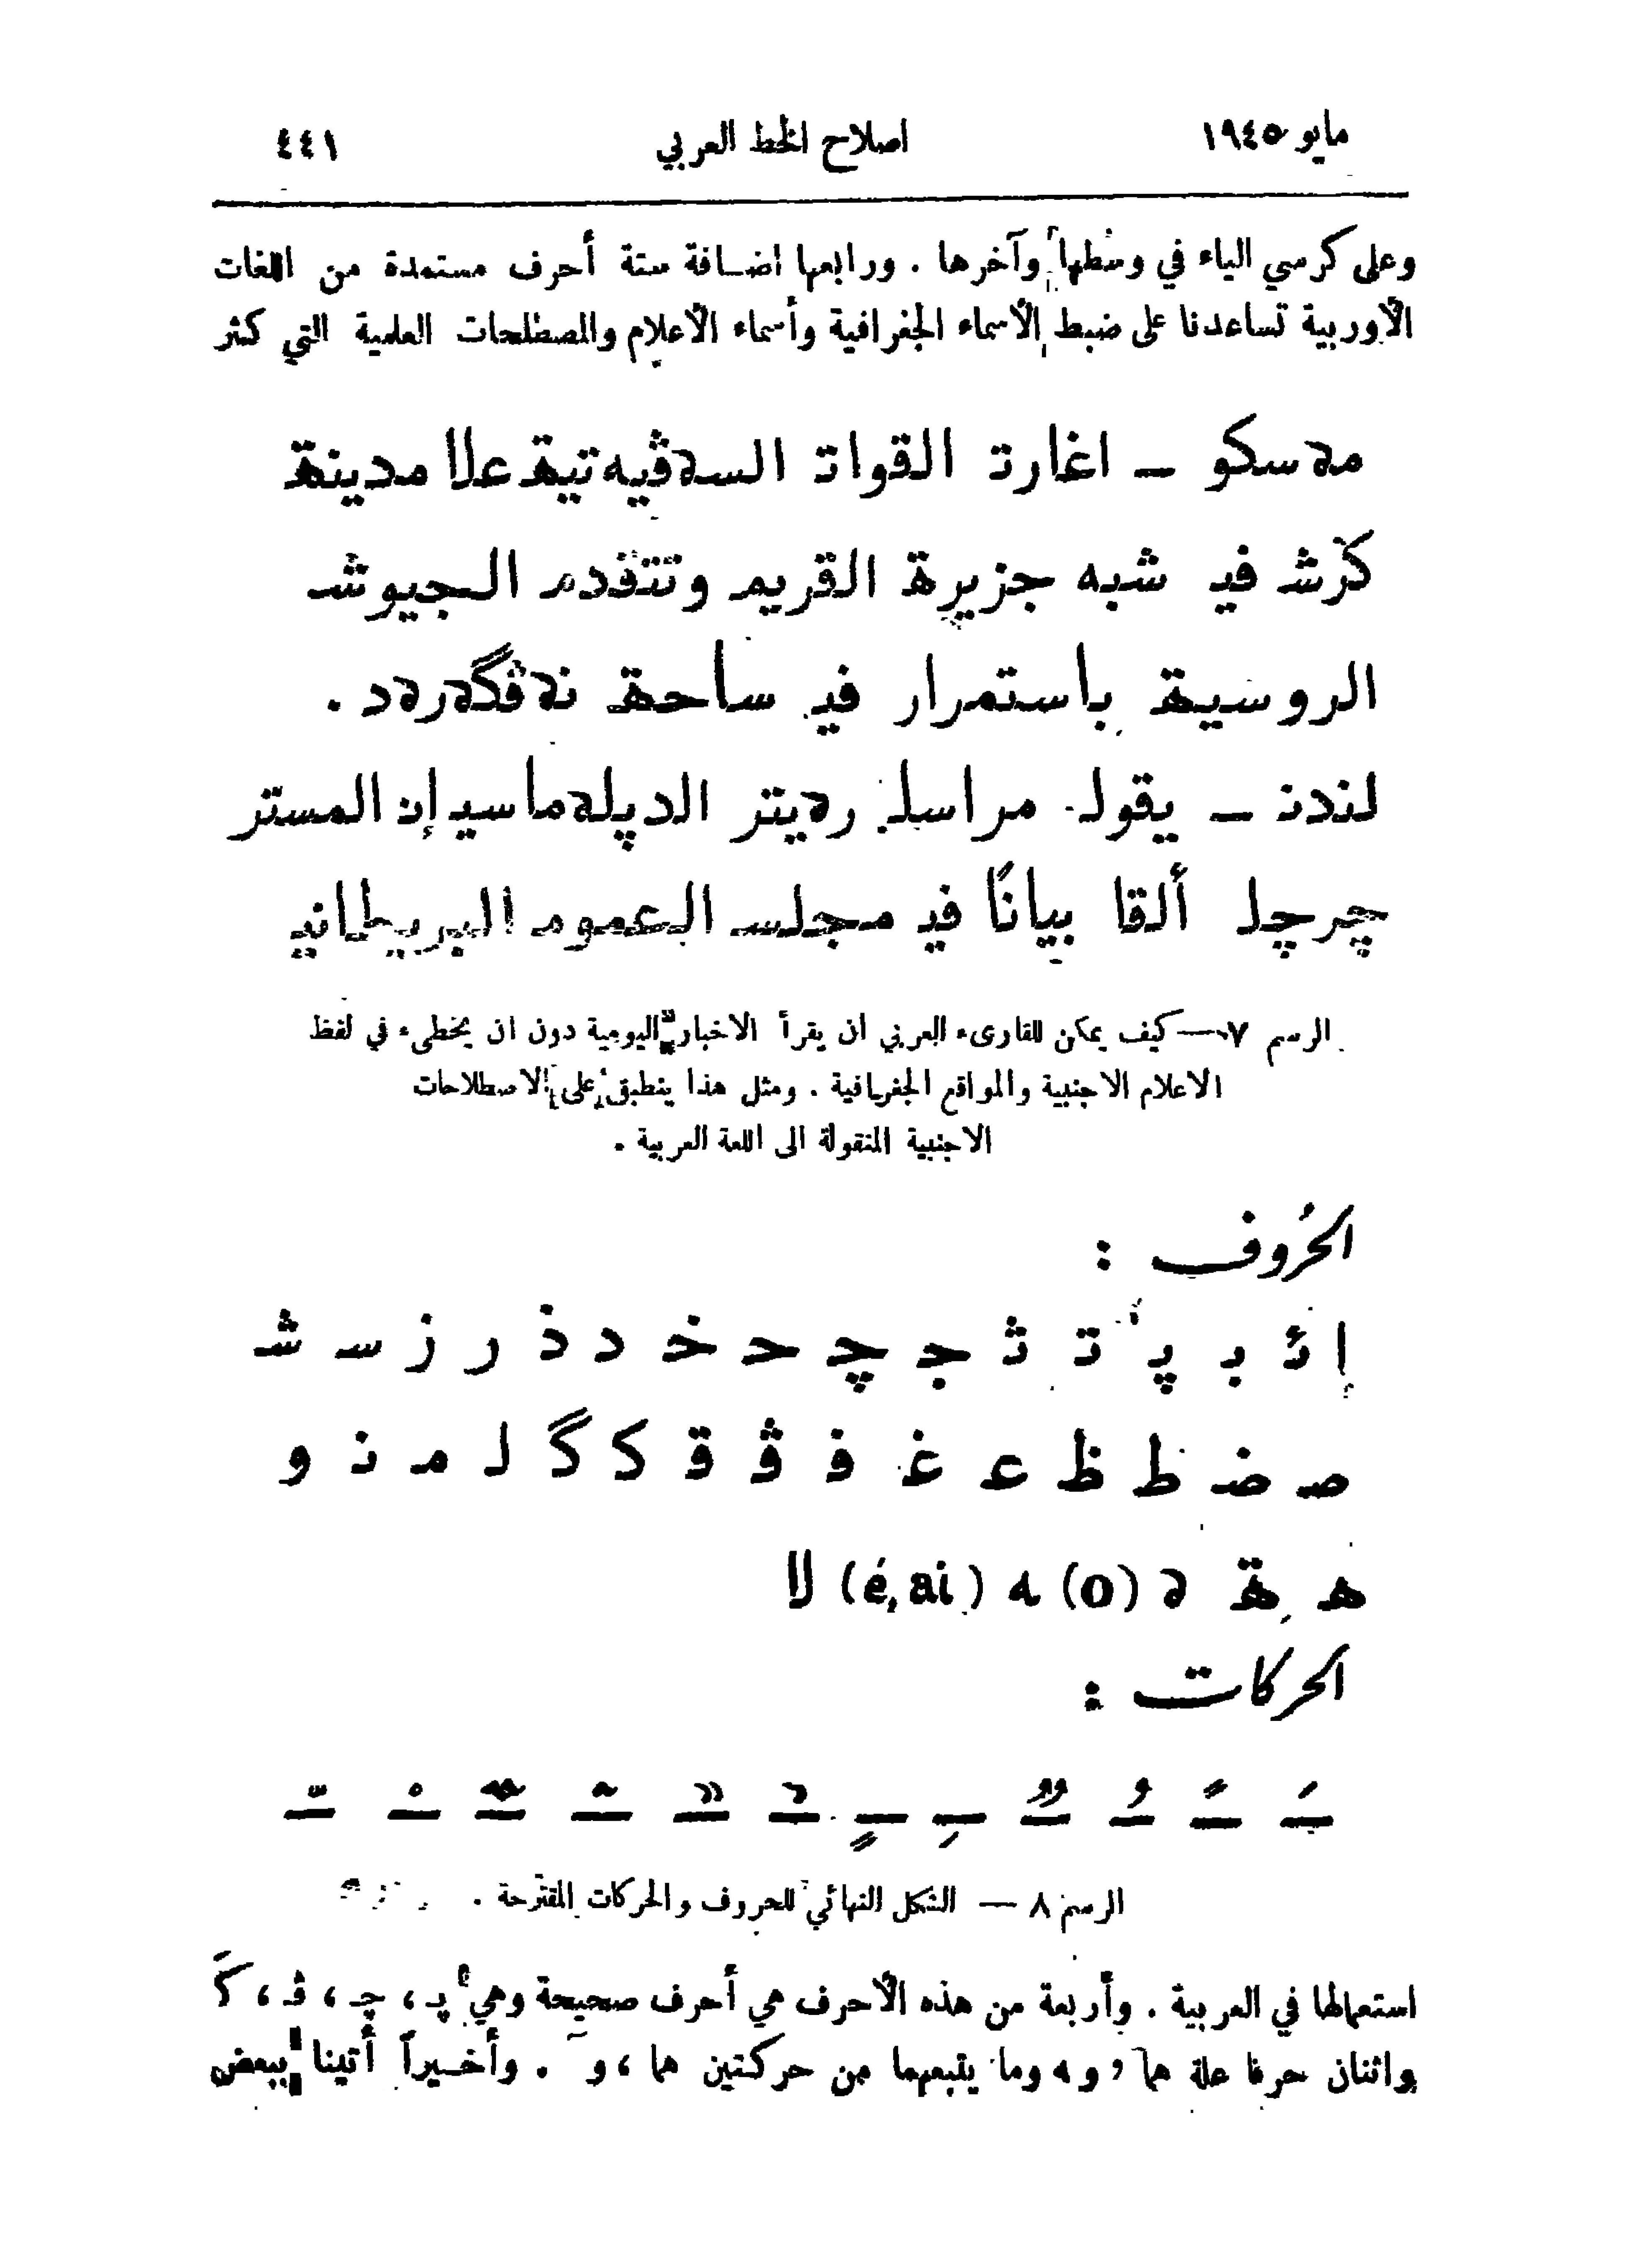 مايو ١٩٤٥ اصلاح الخط العربي ٤٤١
وعلى كرسي الياء في وسطها وآخرها . ورابعها اضافة ستة أحرف مستمدة من اللغات
الأوربية تساعدنا على ضبط الأسماء الجغرافية وأسماء الأعلام والمصطلحات العلمية التي كثر
مەسكو – اغارة القوات السەڤيەتية علا مدينة
كرش في شبه جزيرة القريم وتتقدم الجيوش
الروسية باستمرار في ساحة نەڤگەرەد .
لندن – يقول مراسل رەيتر الدپلەماسي إن المستر
چرچل ألقا بيانًا في مجلس العموم البريطاني
الرسم ٧ — كيف يمكن للقارىء العربي ان يقرأ الاخبار اليومية دون ان يخطىء في لفظ
الاعلام الاجنبية والمواقع الجغرافية . ومثل هذا ينطبق على الاصطلاحات
الاجنبية المنقولة الى اللغة العربية .
الحُروف :
إ ئـ بـ پـ تـ ثـ جـ چـ حـ خـ د ذ ر ز سـ شـ
صـ ضـ ط ظ عـ غـ فـ ڤـ قـ كـ گـ لـ مـ نـ و
هـ ة ە (o) ه (é, ai) لا
الحركات :
ـَ ـً ـُ ـٌ ـِ ـٍ
الرسم ٨ — الشكل النهائي للحروف والحركات المقترحة .
استعمالها في العربية . وأربعة من هذه الأحرف هي أحرف صحيحة وهي پـ ، چـ ، ڤـ ، گ
واثنان حرفا علة هما و ه وما يتبعهما من حركتين هما ، و . وأخيراً أتينا ببعض